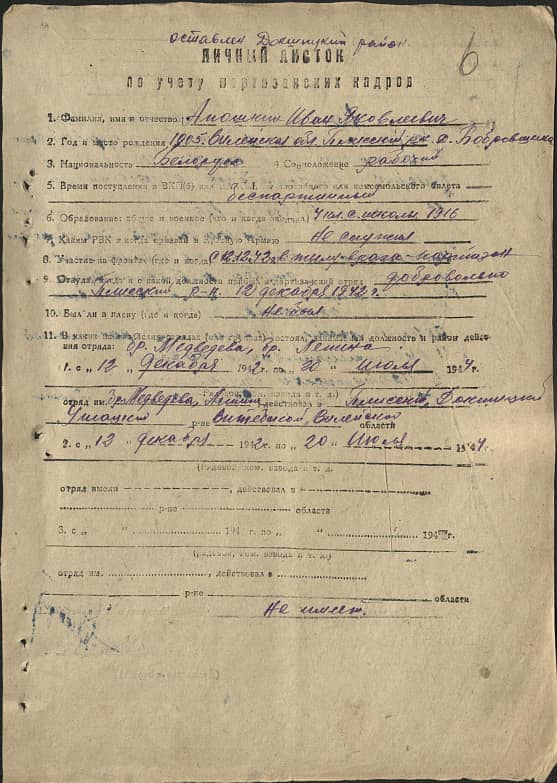 оставлен Докшицкий район.
6
ЛИЧНЫЙ ЛИСТОК
по учету партизанских кадров
1. Фамилия, имя и отчество Аношкин Иван Яковлевич
2. Год и место рождения 1905. Вилейская обл. д. Бобровщина
3. Национальность Белорус 4 Соцположение рабочий
5. Время поступления в ВКП(б) или билета
беспартийный
6. Образование: общее и военное (что и когда окончил) 4 кл. с. школы 1916
7. Каким РВК и когда призван в Красную Армию Не служил
8. Участие на фронтах (где и когда) с 12.12.42 в тылу врага партизан
9. Откуда, когда и с какой должности прибыл в партизанский отряд добровольно
р-н 12 декабря 1942 г.
10. Был ли в плену (где и когда) Не был
11. В каких отрядах состоял, должность и район дейст
вия отряда: бр. Медведева, бр.
1. с „ 12 „ Декабря 1942 г. по „ 20 „ Июля 1944
отряд им. бр. Медведева, действовал в Докшицкий
Ушацкий р-не Витебской, Вилейской области
2. с „ 12 „ декабря 1942 г. по „ 20 „ Июля 1944.
(рядовой, ком. взвода и т. д.)
отряд имени , действовал в
р-не области
3. с „ „ 194 г. по „ „ 194 г.
(рядовой, ком. взвода и т. д.)
отряд им. , действовал в
р-не области
Не имеет.